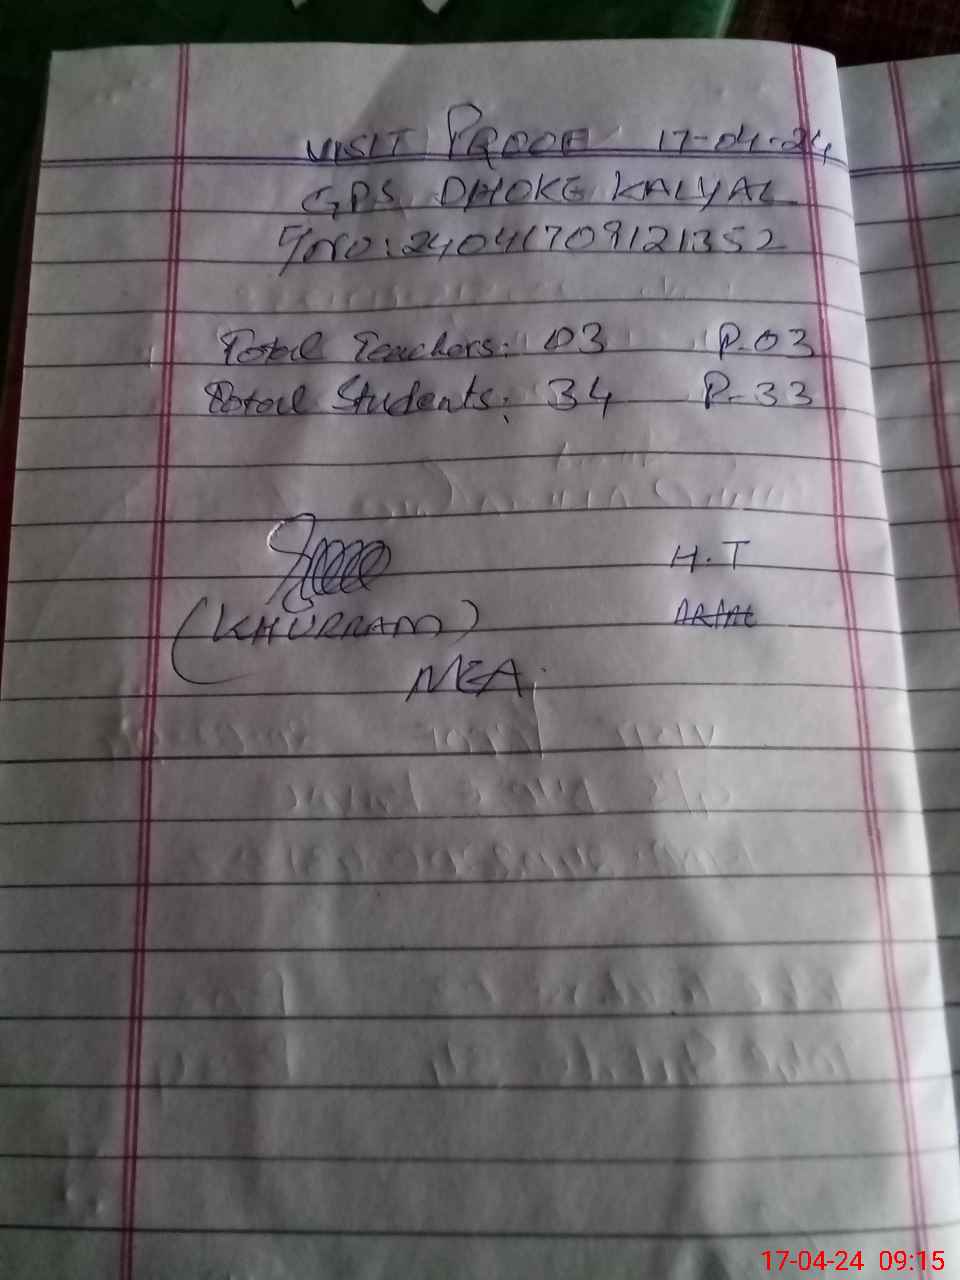 VISIT PROOF 17-04-24
GPS DHOKE KALYAL
F/NO: 24041709121352
Total Teachers: 03 P-03
Total Students: 34 P-33
H.T
(KHURRAM)
MEA
17-04-24 09:15